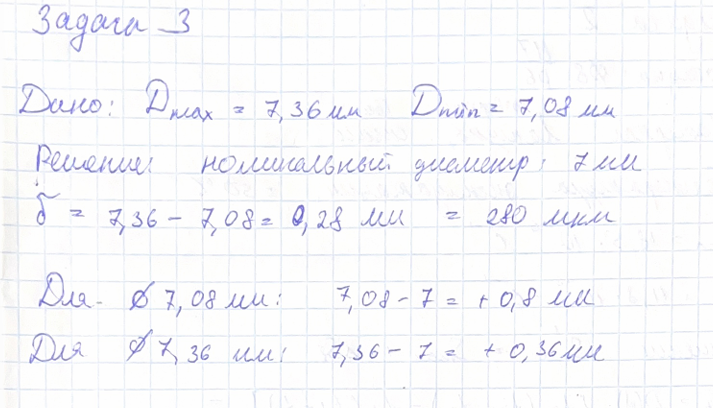 Задача 3
Дано: Dmax = 7,36 мм Dmin = 7,08 мм
Решение: номинальный диаметр: 7 мм
δ = 7,36 - 7,08 = 0,28 мм = 280 мкм
Для ∅ 7,08 мм: 7,08 - 7 = + 0,8 мм
Для ∅ 7,36 мм: 7,36 - 7 = + 0,36 мм